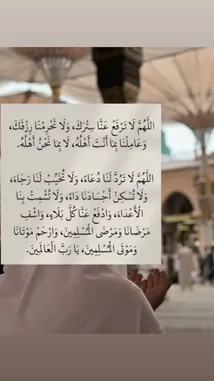 اللَّهُمَّ لَا تَرْفَعْ عَنَّا سِتْرَكَ، وَلَا تَحْرِمْنَا رِزْقَكَ،
وَعَامِلْنَا بِمَا أَنْتَ أَهْلُهُ، لَا بِمَا نَحْنُ أَهْلُهُ.
اللَّهُمَّ لَا تَرُدَّ لَنَا دُعَاءً، وَلَا تُخَيِّبْ لَنَا رَجَاءً،
وَلَا تُسْكِنْ أَجْسَادَنَا دَاءً، وَلَا تُشْمِتْ بِنَا
الْأَعْدَاءَ، وَادْفَعْ عَنَّا كُلَّ بَلَاءٍ، وَاشْفِ
مَرْضَانَا وَمَرْضَى الْمُسْلِمِينَ، وَارْحَمْ مَوْتَانَا
وَمَوْتَى الْمُسْلِمِينَ، يَا رَبَّ الْعَالَمِينَ.